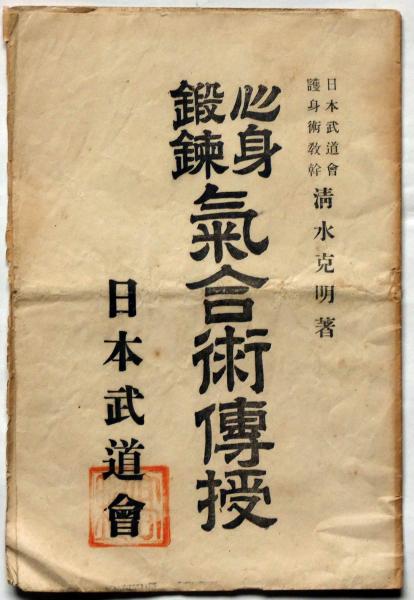 日本武道會
護身術教幹
清水克明著
心身
鍛鍊
氣合術傳授
日本武道會